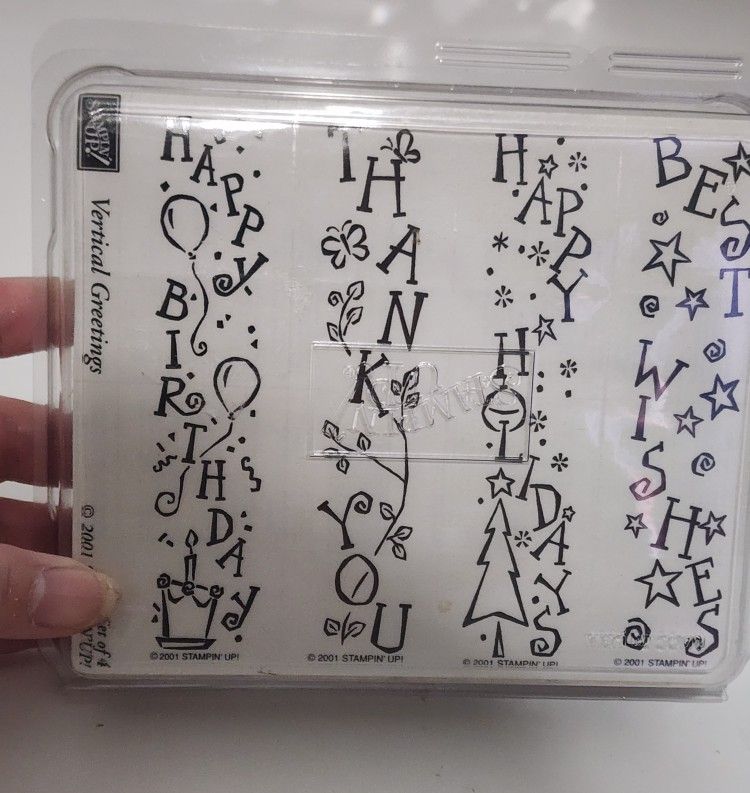 STAMPIN' UP!
Vertical Greetings
© 2001
Set of 4
HAPPY
BIRTHDAY
© 2001 STAMPIN' UP!
THANK
YOU
© 2001 STAMPIN' UP!
HAPPY
HOLIDAYS
© 2001 STAMPIN' UP!
BEST
WISHES
© 2001 STAMPIN' UP!